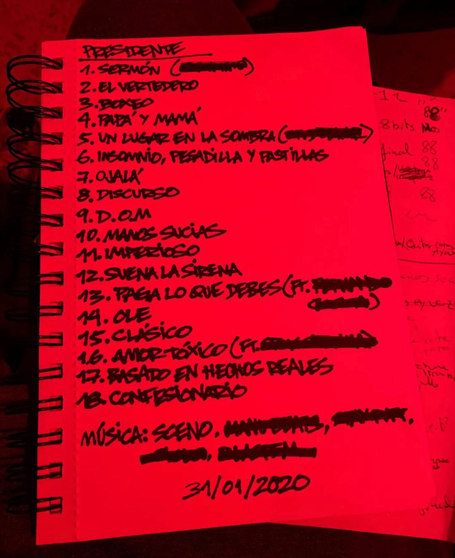 PRESIDENTE
1. SERMÓN (
2. EL VERTEDERO
3. BOXEO
4. PAPÁ Y MAMÁ
5. UN LUGAR EN LA SOMBRA (
6. INSOMNIO, PESADILLA Y PASTILLAS
7. OJALÁ
8. DISCURSO
9. D.O.M
10. MANOS SUCIAS
11. IMPERIOSO
12. SUENA LA SIRENA
13. PAGA LO QUE DEBES (FT.
14. OLE
15. CLÁSICO
16. AMOR TÓXICO (FT.
17. BASADO EN HECHOS REALES
18. CONFESIONARIO
MÚSICA: SCENO,
31/01/2020
88
8bits
88
88
88